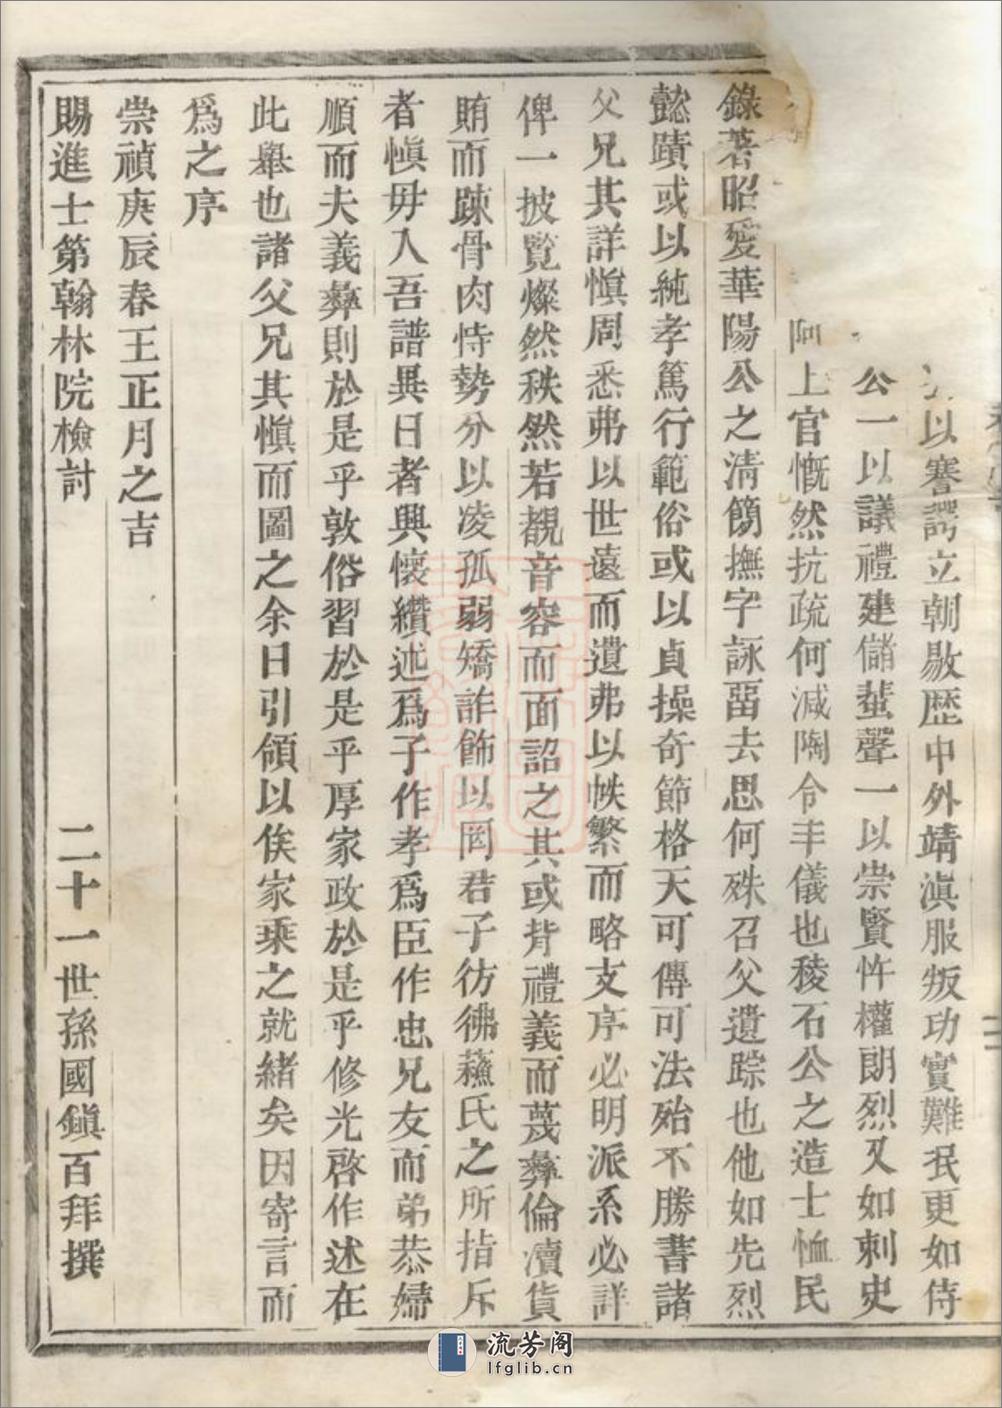 以謇諤立朝敭歷中外靖滇服叛功實難泯更如侍
公一以議禮建儲蜚聲一以崇賢忤權朗烈又如刺史
阿上官慨然抗疏何減陶令丰儀也稜石公之造士恤民
錄著昭愛華陽公之清簡撫字詠畱去思何殊召父遺踪也他如先烈
懿蹟或以純孝篤行範俗或以貞操奇節格天可傳可法殆不勝書諸
父兄其詳慎周悉弗以世遠而遺弗以帙繁而略支序必明派系必詳
俾一披覽燦然秩然若覩音容而面詔之其或背禮義而蔑彝倫瀆貨
賄而踈骨肉恃勢分以凌孤弱矯詐飾以罔君子彷彿蘓氏之所指斥
者慎毋入吾譜異日者興懷纘述為子作孝為臣作忠兄友而弟恭婦
順而夫義彝則於是乎敦俗習於是乎厚家政於是乎修光啓作述在
此舉也諸父兄其慎而圖之余日引領以俟家乘之就緒矣因寄言而
為之序
崇禎庚辰春王正月之吉
賜進士第翰林院檢討 二十一世孫國鎭百拜撰
流芳阁
lfglib.cn